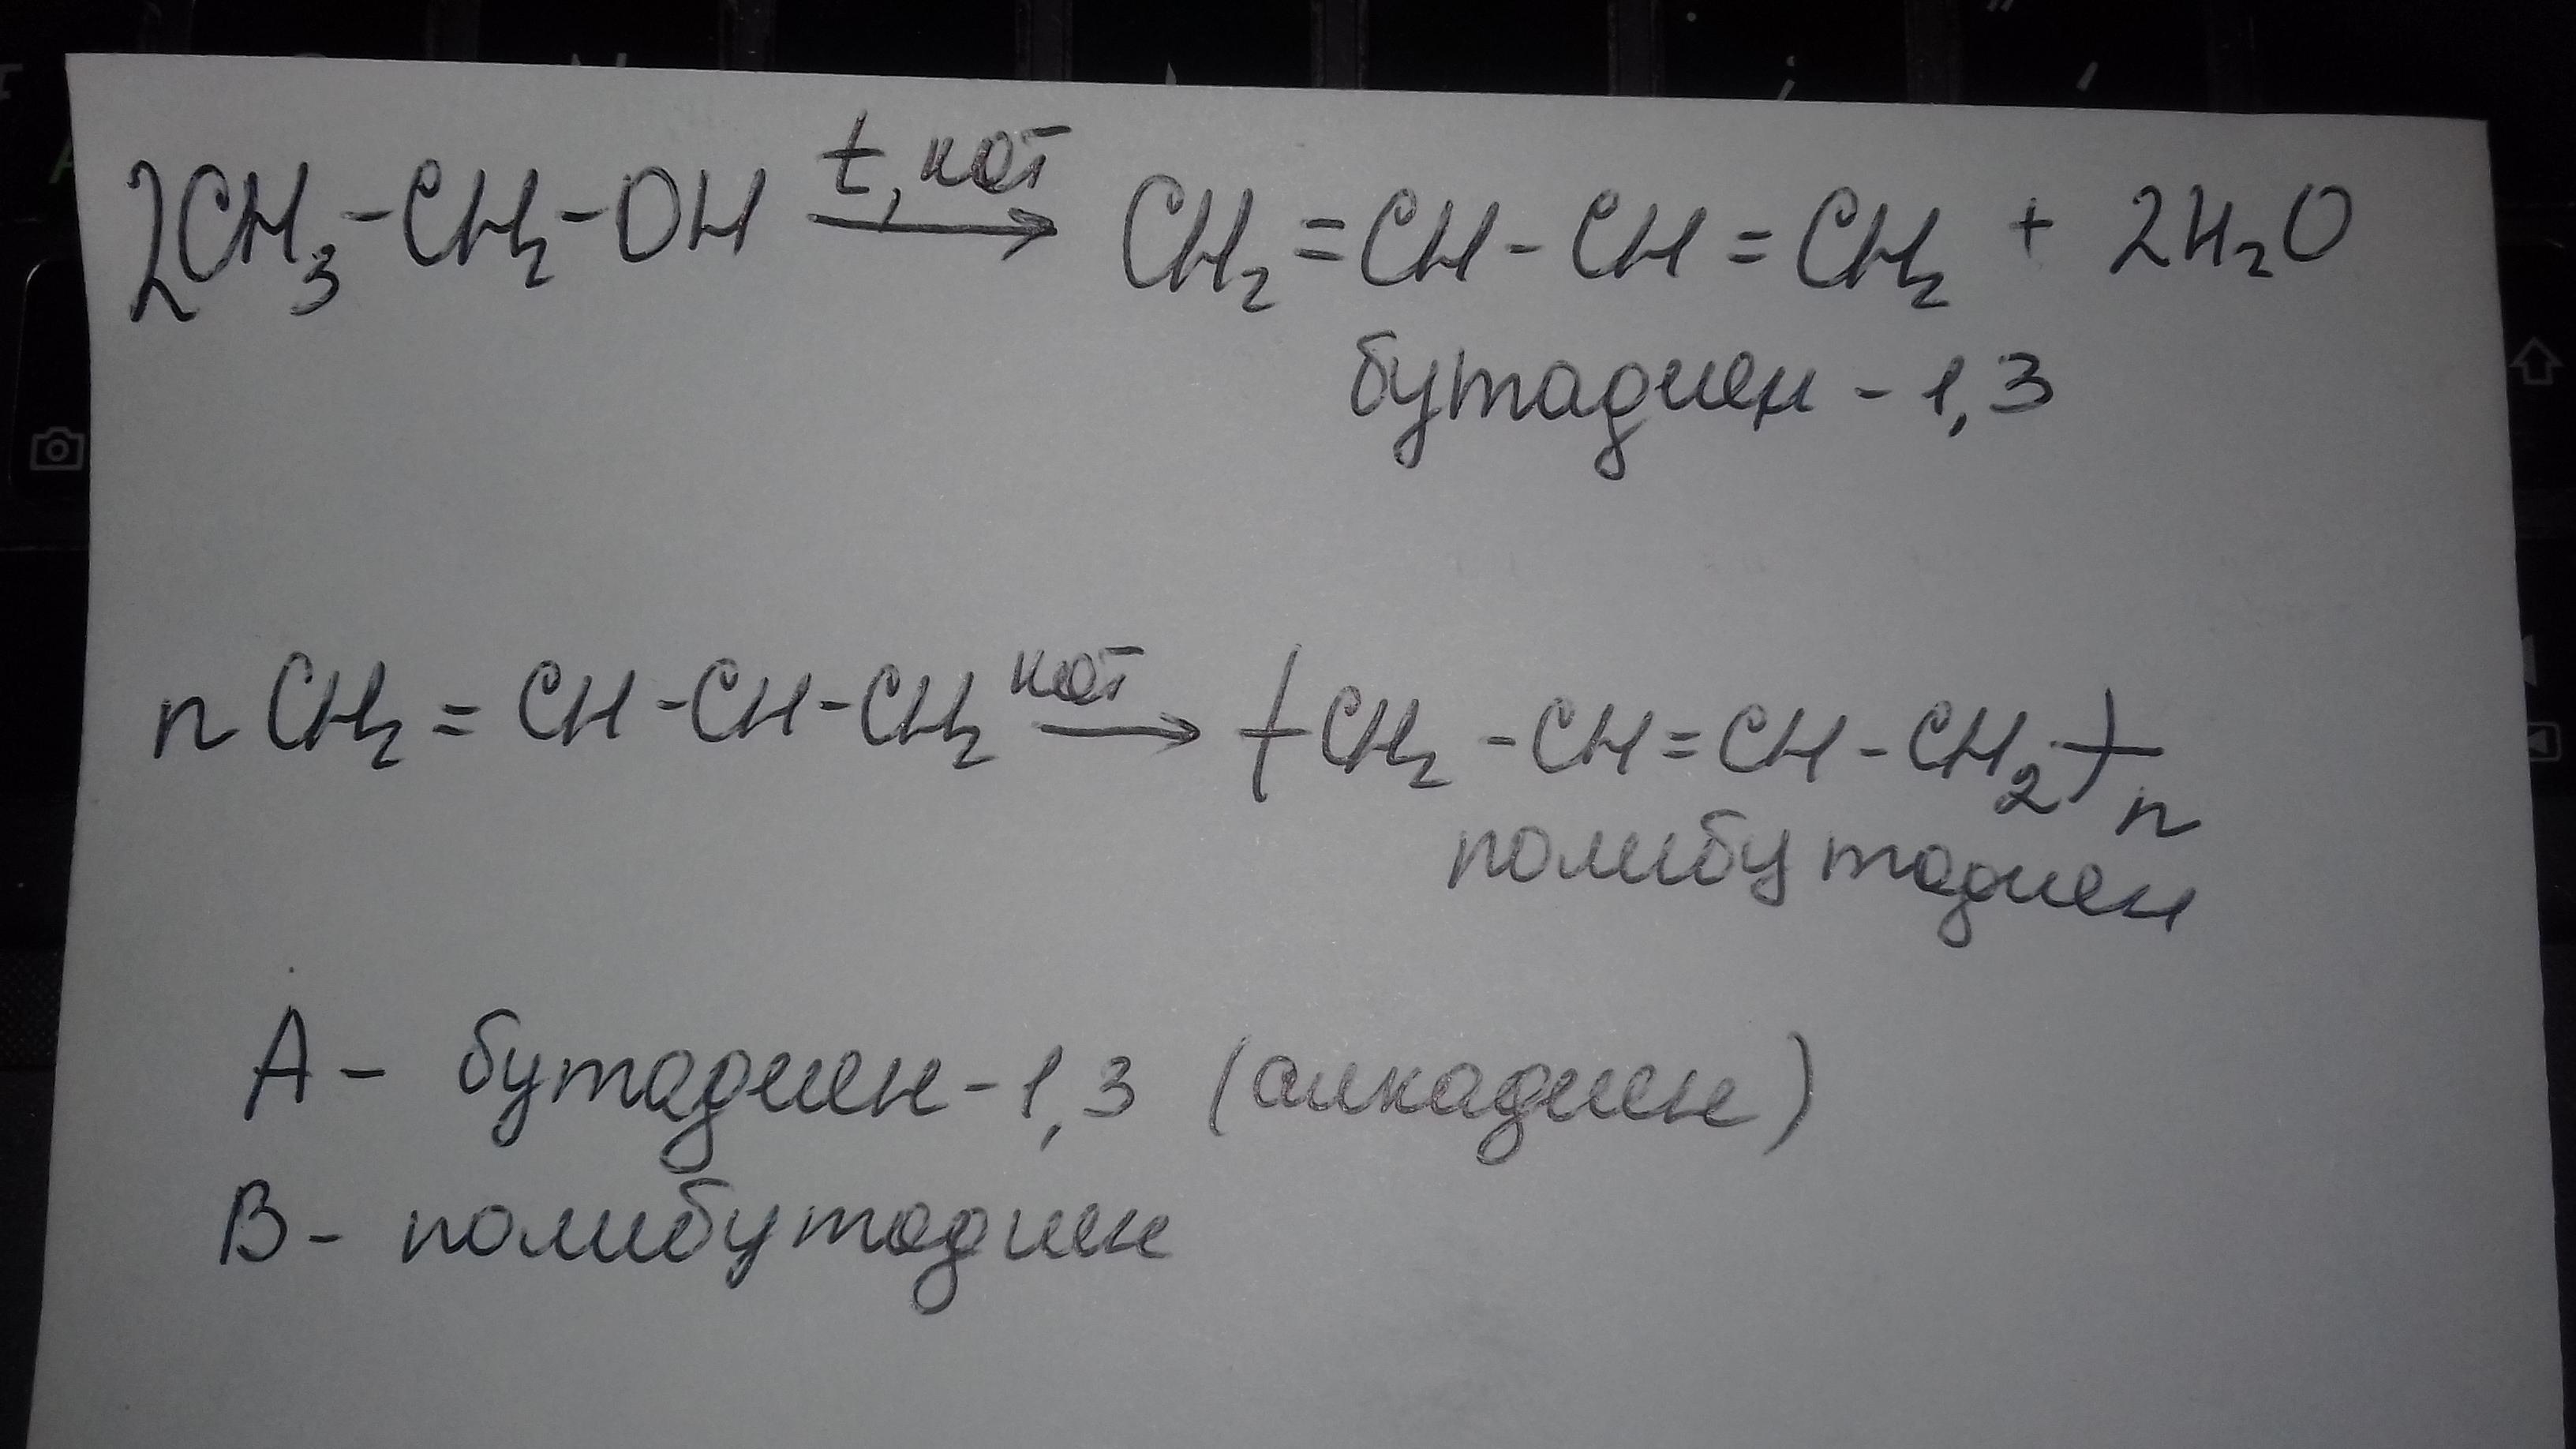 2CH₃-CH₂-OH t, кат → CH₂=CH-CH=CH₂ + 2H₂O
бутадиен-1,3
nCH₂=CH-CH-CH₂ кат → (-CH₂-CH=CH-CH₂-)n
полибутадиен
A- бутадиен-1,3 (алкадиен)
B- полибутадиен